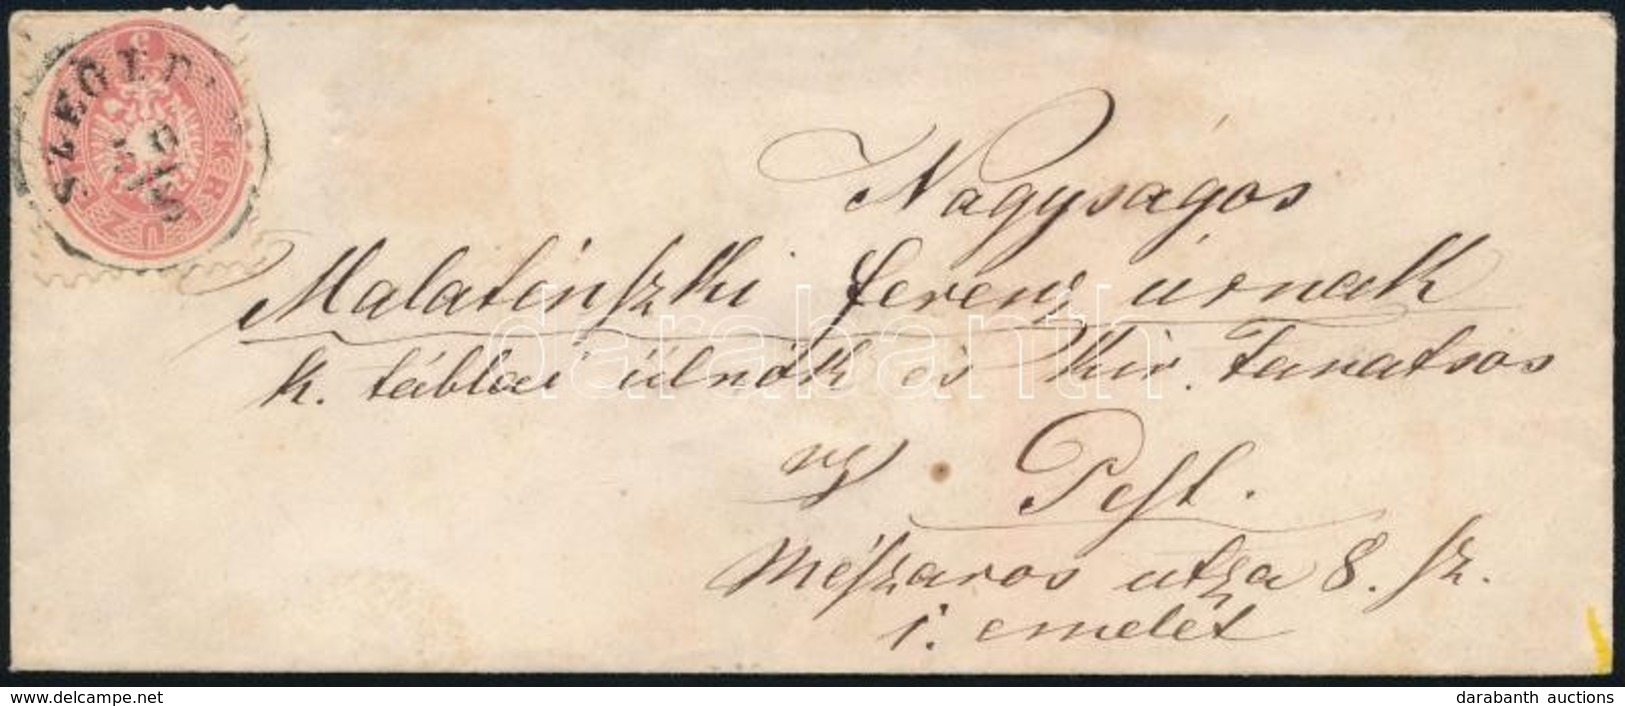 SZEGEDIN
5
KREUZER
Nagyságos
Malatinszki Ferenc úrnak
k. táblai ülnök és kir. Tanatsos
Pest.
Mészaros utza 8. sz.
1. emelet
darabanth
www.delcampe.net
darabanth auctions